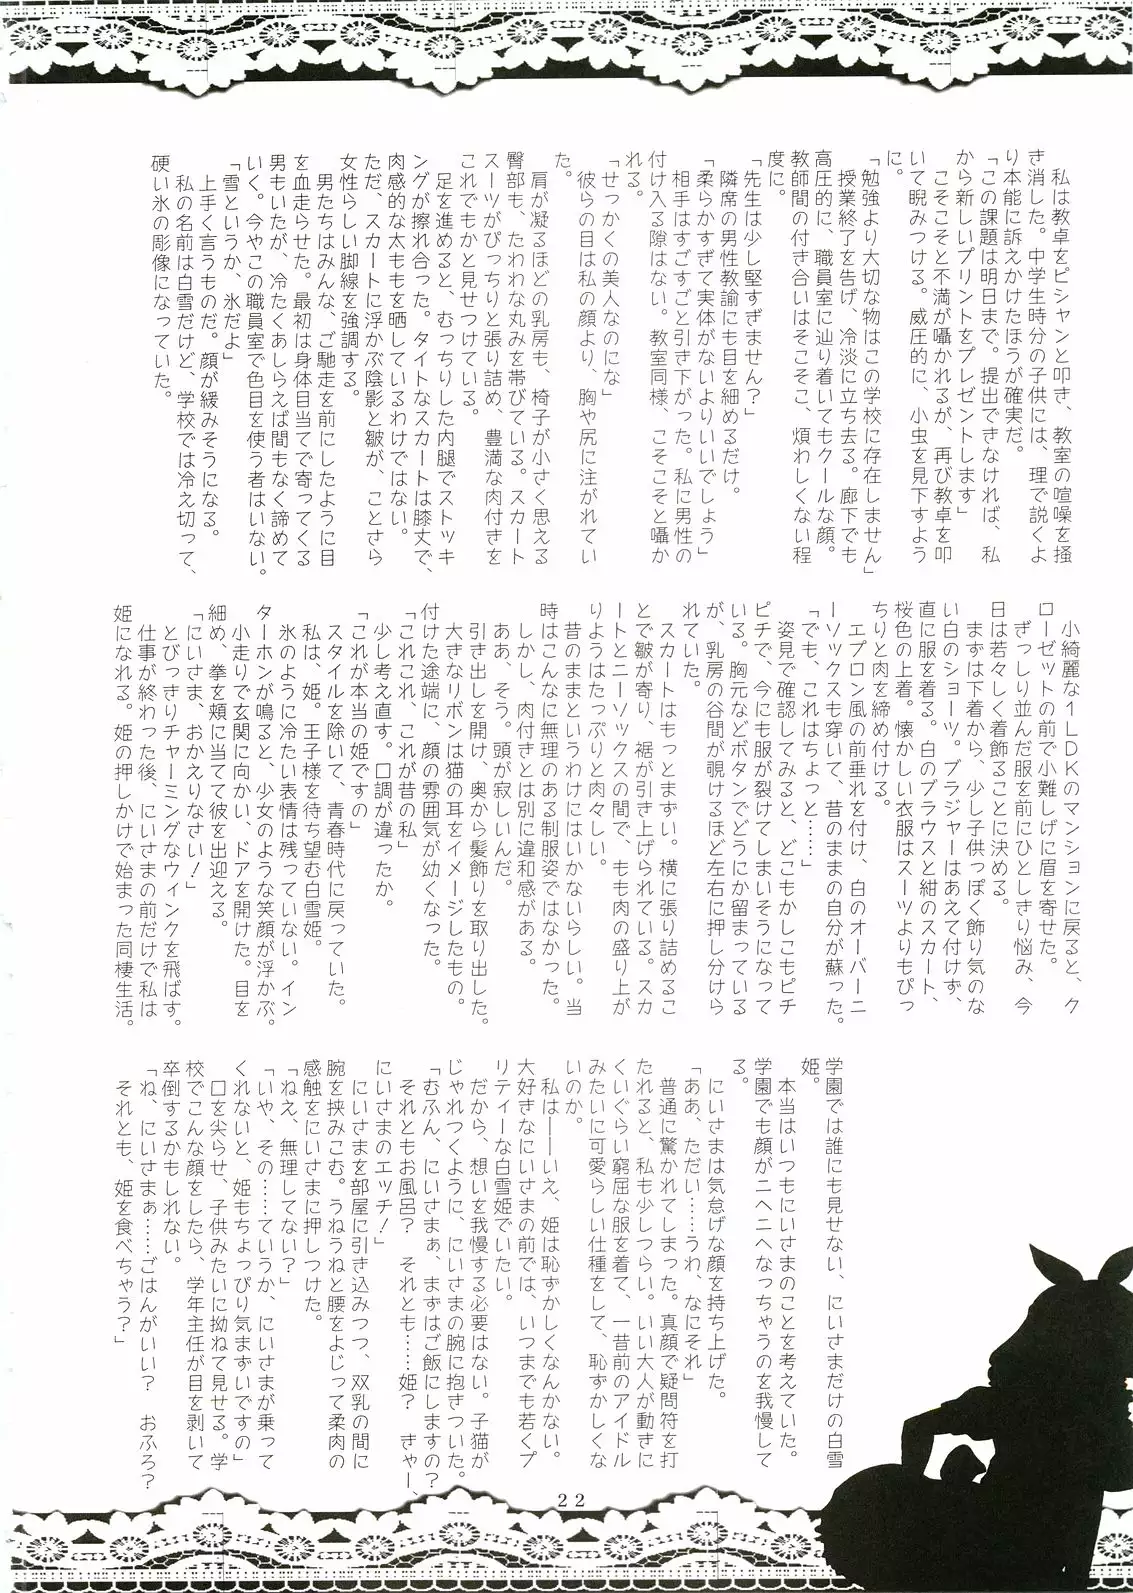 私は教卓をピシャンと叩き、教室の喧噪を掻
き消した。中学生時分の子供には、理で説くよ
り本能に訴えかけたほうが確実だ。
「この課題は明日まで。提出できなければ、私
から新しいプリントをプレゼントします」
こそこそと不満が囁かれるが、再び教卓を叩
いて睨みつける。威圧的に、小虫を見下すよう
に。
「勉強より大切な物はこの学校に存在しません」
授業終了を告げ、冷淡に立ち去る。廊下でも
高圧的に、職員室に辿り着いてもクールな顔。
教師間の付き合いはそこそこ、煩わしくない程
度に。
「先生は少し堅すぎません?」
隣席の男性教諭にも目を細めるだけ。
「柔らかすぎて実体がないよりいいでしょう」
相手はすごすごと引き下がった。私に男性の
付け入る隙はない。教室同様、こそこそと囁か
れる。
「せっかくの美人なのにな」
彼らの目は私の顔より、胸や尻に注がれてい
た。
肩が凝るほどの乳房も、椅子が小さく思える
臀部も、たわわな丸みを帯びている。スカート
スーツがぴっちりと張り詰め、豊満な肉付きを
これでもかと見せつけている。
足を進めると、むっちりした内腿でストッキ
ングが擦れ合った。タイトなスカートは膝丈で、
肉感的な太ももを晒しているわけではない。
ただ、スカートに浮かぶ陰影と皺が、ことさら
女性らしい脚線を強調する。
男たちはみんな、ご馳走を前にしたように目
を血走らせた。最初は身体目当てで寄ってくる
男もいたが、冷たくあしらえば間もなく諦めて
いく。今やこの職員室で色目を使う者はいない。
「雪というか、氷だよ」
上手く言うものだ。顔が緩みそうになる。
私の名前は白雪だけど、学校では冷え切って、
硬い氷の彫像になっていた。
小綺麗な1LDKのマンションに戻ると、ク
ローゼットの前で小難しげに眉を寄せた。
ざっしり並んだ服を前にひとしきり悩み、今
日は若々しく着飾ることに決める。
まずは下着から、少し子供っぽく飾り気のな
い白のショーツ。ブラジャーはあえて付けず、
直に服を着る。白のブラウスと紺のスカート、
桜色の上着。懐かしい衣服はスーツよりもぴっ
ちりと肉を締め付ける。
エプロン風の前垂れを付け、白のオーバーニ
ーソックスも穿いて、昔のままの自分が蘇った。
「でも、これはちょっと……」
姿見で確認してみると、どこもかしこもピチ
ピチで、今にも服が裂けてしまいそうになって
いる。胸元などボタンでどうにか留まっている
が、乳房の谷間が覗けるほど左右に押し分けら
れていた。
スカートはもっとまずい。横に張り詰めるこ
とで皺が寄り、裾が引き上げられている。スカ
ートとニーソックスの間で、もも肉の盛り上が
りようはたっぷりと肉々しい。
昔のままというわけにはいかないらしい。当
時はこんなに無理のある制服姿ではなかった。
しかし、肉付きとは別に違和感がある。
ああ、そう。頭が寂しいんだ。
引き出しを開け、奥から髪飾りを取り出した。
大きなリボンは猫の耳をイメージしたもの。
付けた途端に、顔の雰囲気が幼くなった。
「これこれ、これが昔の私」
少し考え直す。口調が違ったか。
「これが本当の姫ですの」
スタイルを除いて、青春時代に戻っていた。
私は、姫。王子様を待ち望む白雪姫。
氷のように冷たい表情は残っていない。イン
ターホンが鳴ると、少女のような笑顔が浮かぶ。
小走りで玄関に向かい、ドアを開けた。目を
細め、拳を頬に当てて彼を出迎える。
「にいさま、おかえりなさい!」
とびっきりチャーミングなウィンクを飛ばす。
仕事が終わった後、にいさまの前だけで私は
姫になれる。姫の押しかけで始まった同棲生活。
学園では誰にも見せない、にいさまだけの白雪
姫。
本当はいつもにいさまのことを考えていた。
学園でも顔がニヘニヘなっちゃうのを我慢して
る。
にいさまは気怠げな顔を持ち上げた。
「ああ、ただい……うわ、なにそれ」
普通に驚かれてしまった。真顔で疑問符を打
たれると、私も少しつらい。いい大人が動きに
くいぐらい窮屈な服を着て、一昔前のアイドル
みたいに可愛らしい仕種をして、恥ずかしくな
いのか。
私は――いえ、姫は恥ずかしくなんかない。
大好きなにいさまの前では、いつまでも若くプ
リティーな白雪姫でいたい。
だから、想いを我慢する必要はない。子猫が
じゃれつくように、にいさまの腕に抱きついた。
「むふん、にいさまぁ、まずはご飯にしますの?
それともお風呂? それとも……姫? きゃー、
にいさまのエッチ!」
にいさまを部屋に引き込みつつ、双乳の間に
腕を挟みこむ。うねうねと腰をよじって柔肉の
感触をにいさまに押しつけた。
「ねえ、無理してない?」
「いや、その……ていうか、にいさまが乗って
くれないと、姫もちょっぴり気まずいですの」
口を尖らせ、子供みたいに拗ねて見せる。学
校でこんな顔をしたら、学年主任が目を剥いて
卒倒するかもしれない。
「ね、にいさまぁ……ごはんがいい? おふろ?
それとも、姫を食べちゃう?」
22